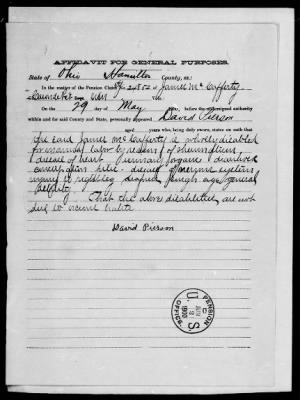 AFFIDAVIT FOR GENERAL PURPOSES.
State of Ohio Hamilton County, ss:
In the matter of the Pension Claim of James McCafferty
On the 29 day of May before the undersigned authority
within and for said County and State, personally appeared David Pierson
aged years who, being duly sworn, states on oath that
the said James McCafferty is wholly disabled
for manual labor by reason of rheumatism,
disease of heart urinary organs diarrhoea
constipation piles disease of nervous system
injury to right leg age general
debility That the above disabilities are not
due to vicious habits
David Pierson
PENSION OFFICE.
U. S.
1900